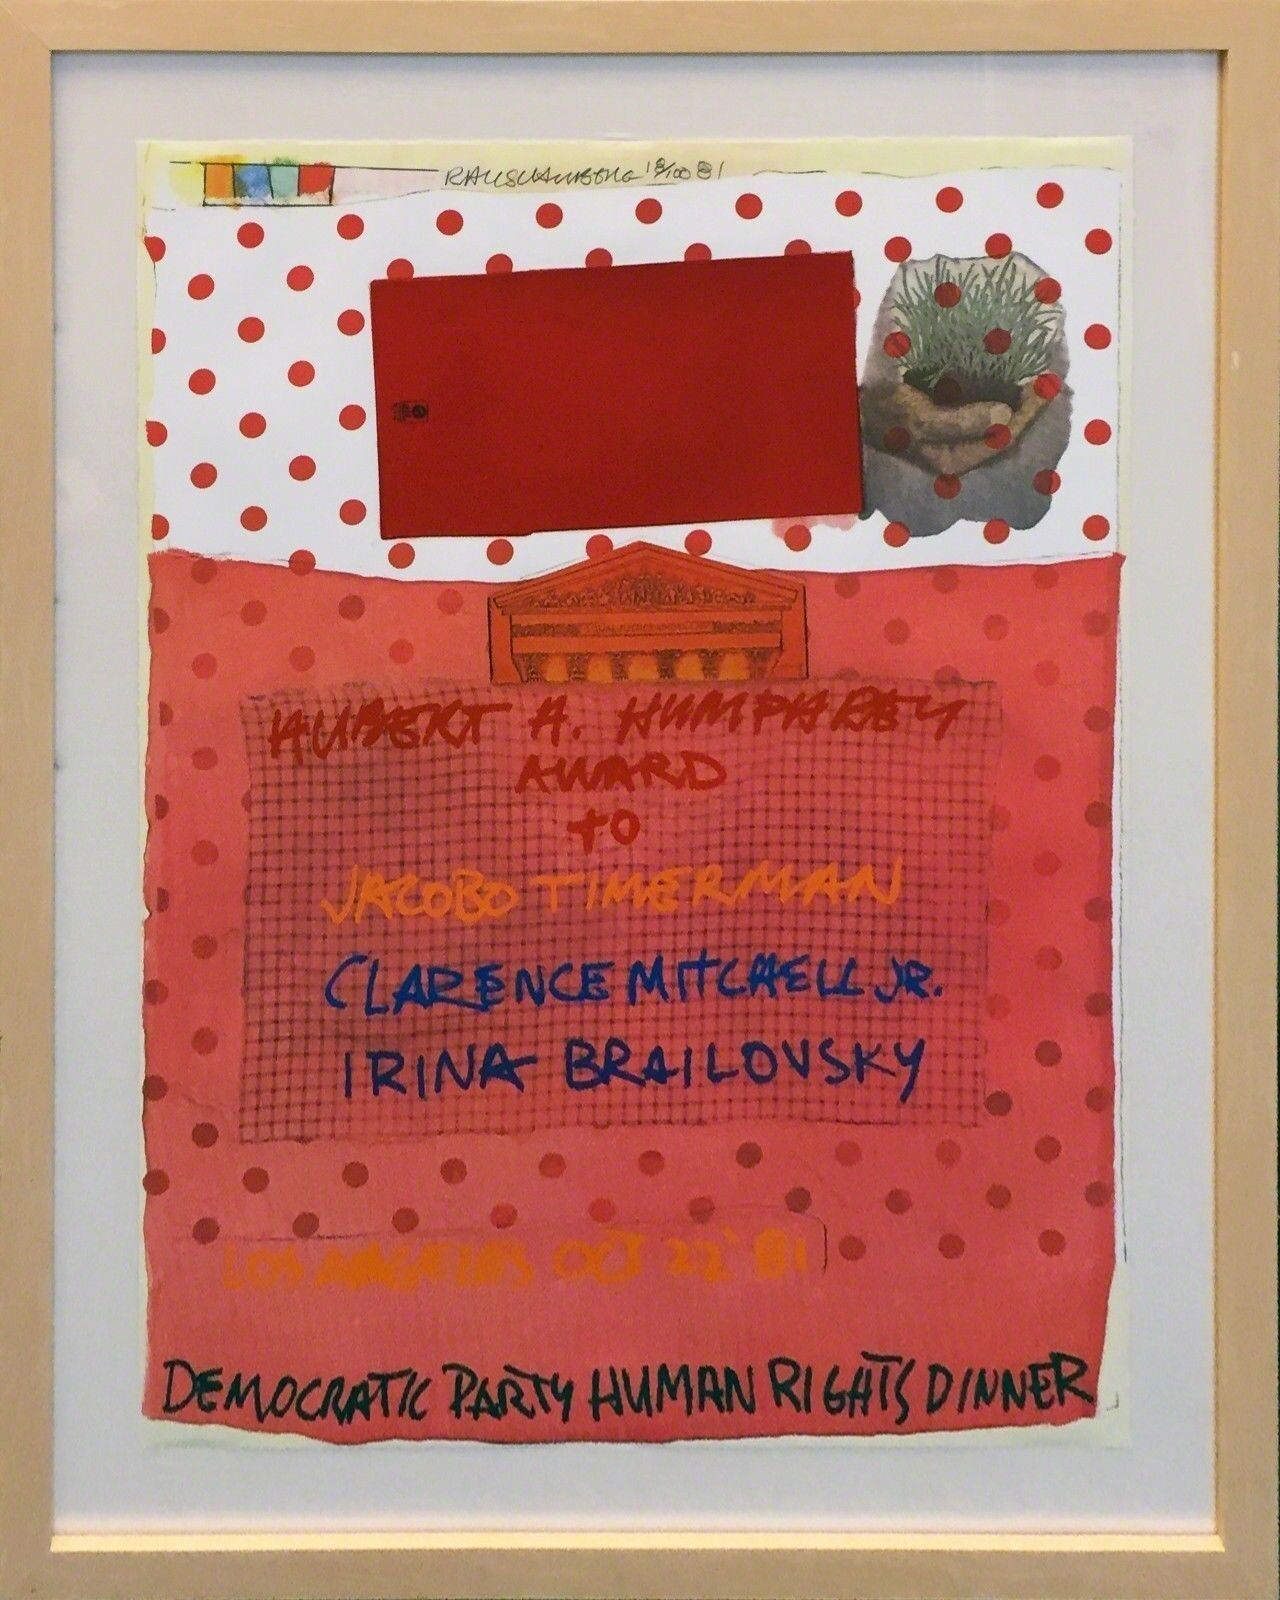 RAUSCHENBERG 18/100 81
HUBERT H. HUMPHREY
AWARD
to
JACOBO TIMERMAN
CLARENCE MITCHELL JR.
IRINA BRAILOVSKY
LOS ANGELES OCT 22' 81
DEMOCRATIC PARTY HUMAN RIGHTS DINNER